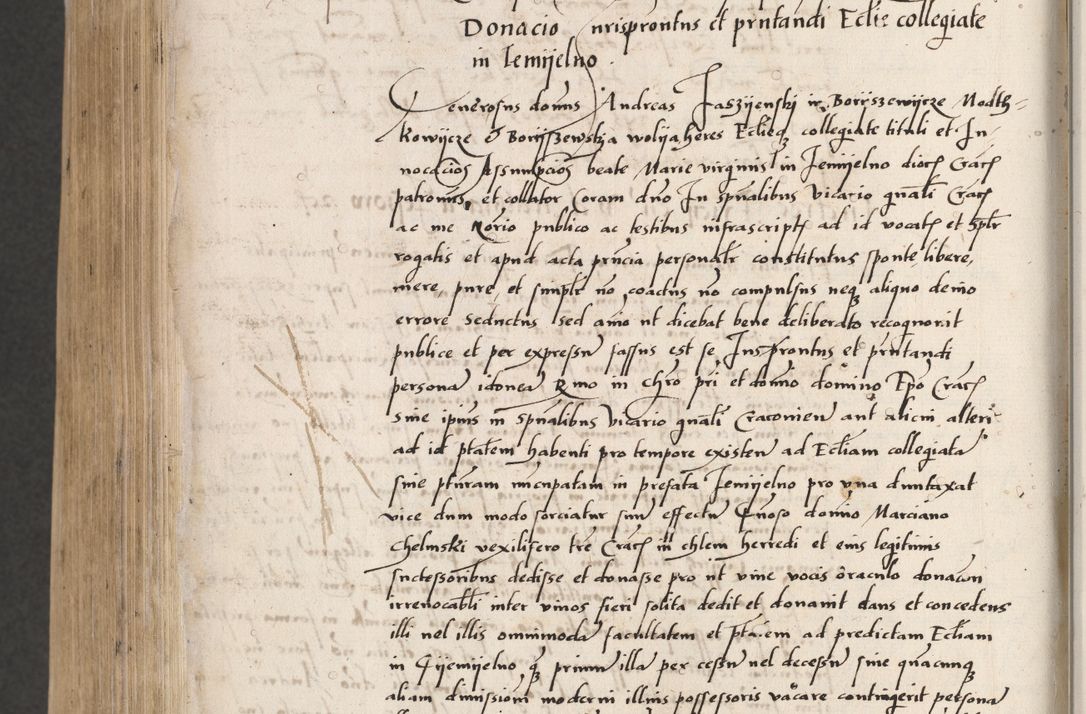 Donacio Jurisprontus et prntandi Eclie collegiate
in Iemijelno
Generosus domns Andreas Jaszijenskj in Borijszewijcze Modth-
kowijcze & Borijszewskja wolija heres Eclieq collegiate tituli et In-
nocacios Assumpcios beate Marie virginis in Jemijelno dioc Crac
patronus et collator Coram dno In spualibus vicario gnali Crac
ac me Norio publico ac testibus infrascript ad id vocat et Splr
rogatis et apud acta prncia personalr constitutus sponte libere,
mere, pure, et simplr no coactus no compulsus neq aliquo demo
errore seductus sed amo ut dicebat bene deliberato recognovit
publice et per expressu fassus est se Jusprontus et prntandi
persona idonea Rmo in Chro pri et domno domino Epo Crac
sine ipius in spualibus vicario gnali Cracovien aut alicui alteri
ad id ptatem habenti pro tempore existen ad Ecliam collegiata
sine pturam nucupatam in prefata Jemijelno pro vna duntaxat
vice dum modo sorciatur suu effectu Gnoso domno Marciano
Chelmski vexilifero tre Crac in chlem herredi et eius legitimis
suctessoribus dedisse et donasse pro ut vive vocis oraculo donacon
irrevocabli inter vivos fieri solita dedit et donavit dans et concedens
illi vel illis omnimoda facultatem et ptatem ad predictam Ecliam
in Gijemijelno q primu illa per cessu vel decessu sive quacunq
aliam dimissioni moderni illius possessoris vacare contingerit persona